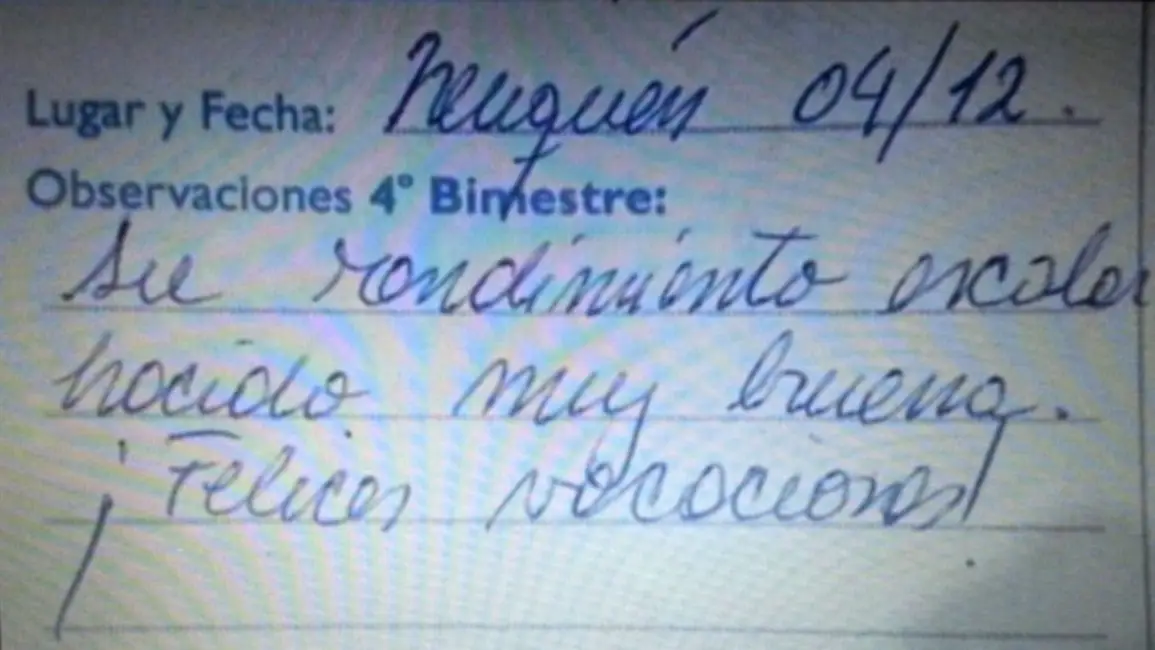 Lugar y Fecha: Neuquén 04/12.
Observaciones 4° Bimestre:
Su rendimiento escolar
hacido muy buena.
¡Felices vacaciones!